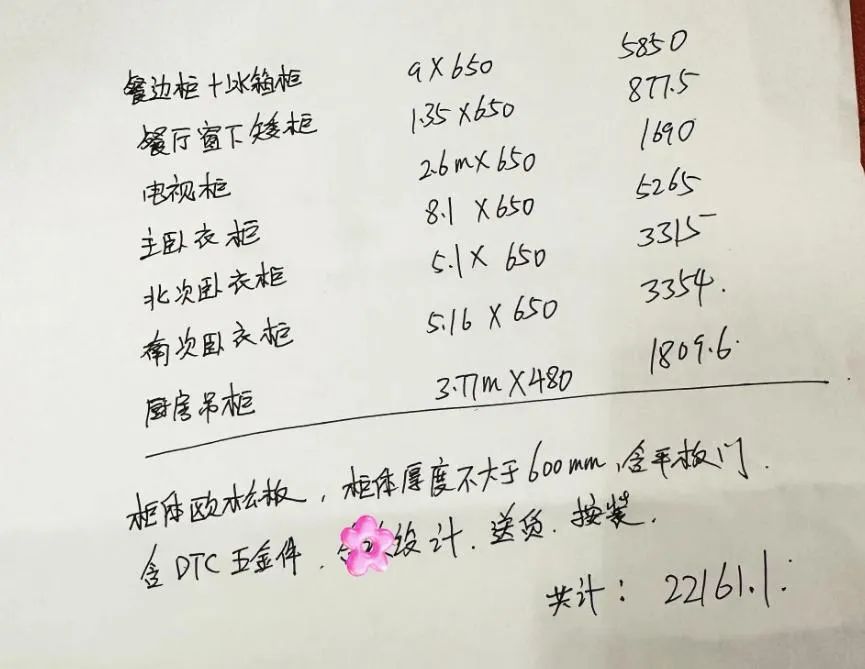 餐边柜+冰箱柜 9×650 5850
餐厅窗下矮柜 1.35×650 877.5
电视柜 2.6m×650 1690
主卧衣柜 8.1×650 5265
北次卧衣柜 5.1×650 3315
南次卧衣柜 5.16×650 3354.
厨房吊柜 3.77m×480 1809.6.
柜体欧松板，柜体厚度不大于600mm，含平板门．
含DTC五金件．设计．送货．按装．
共计：22161.1.